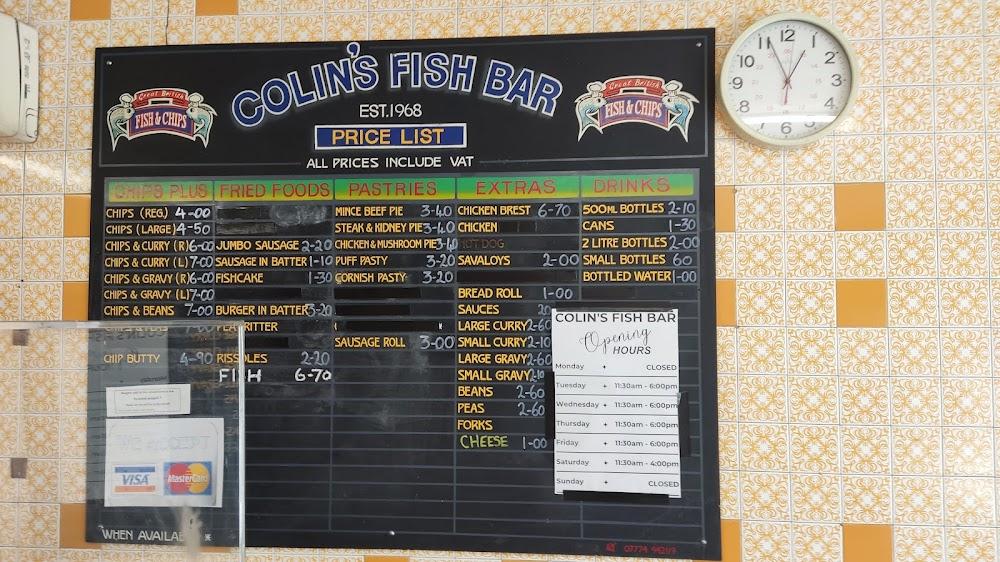 COLIN'S FISH BAR
EST.1968
PRICE LIST
ALL PRICES INCLUDE VAT
Great British
FISH & CHIPS
Great British
FISH & CHIPS
CHIPS PLUS
CHIPS (REG) 4-00
CHIPS (LARGE) 4-50
CHIPS & CURRY (R) 6-00
CHIPS & CURRY (L) 7-00
CHIPS & GRAVY (R) 6-00
CHIPS & GRAVY (L) 7-00
CHIPS & BEANS 7-00
CHIP BUTTY 4-90
FRIED FOODS
JUMBO SAUSAGE 2-20
SAUSAGE IN BATTER 1-10
FISHCAKE 1-30
BURGER IN BATTER 3-20
PEA FRITTER
RISSOLES 2-20
FISH 6-70
PASTRIES
MINCE BEEF PIE 3-40
STEAK & KIDNEY PIE 3-40
CHICKEN & MUSHROOM PIE 3-40
PUFF PASTY 3-20
CORNISH PASTY 3-20
SAUSAGE ROLL 3-00
EXTRAS
CHICKEN BREST 6-70
CHICKEN
HOT DOG
SAVALOYS 2-00
BREAD ROLL 1-00
SAUCES 20
LARGE CURRY 2-60
SMALL CURRY 2-10
LARGE GRAVY 2-60
SMALL GRAVY 2-10
BEANS 2-60
PEAS 2-60
FORKS
CHEESE 1-00
DRINKS
500ML BOTTLES 2-10
CANS 1-30
2 LITRE BOTTLES 2-00
SMALL BOTTLES 60
BOTTLED WATER 1-00
COLIN'S FISH BAR
Opening
HOURS
Monday + CLOSED
Tuesday + 11:30am - 6:00pm
Wednesday + 11:30am - 6:00pm
Thursday + 11:30am - 6:00pm
Friday + 11:30am - 6:00pm
Saturday + 11:30am - 4:00pm
Sunday + CLOSED
WE ACCEPT
VISA
MasterCard
WHEN